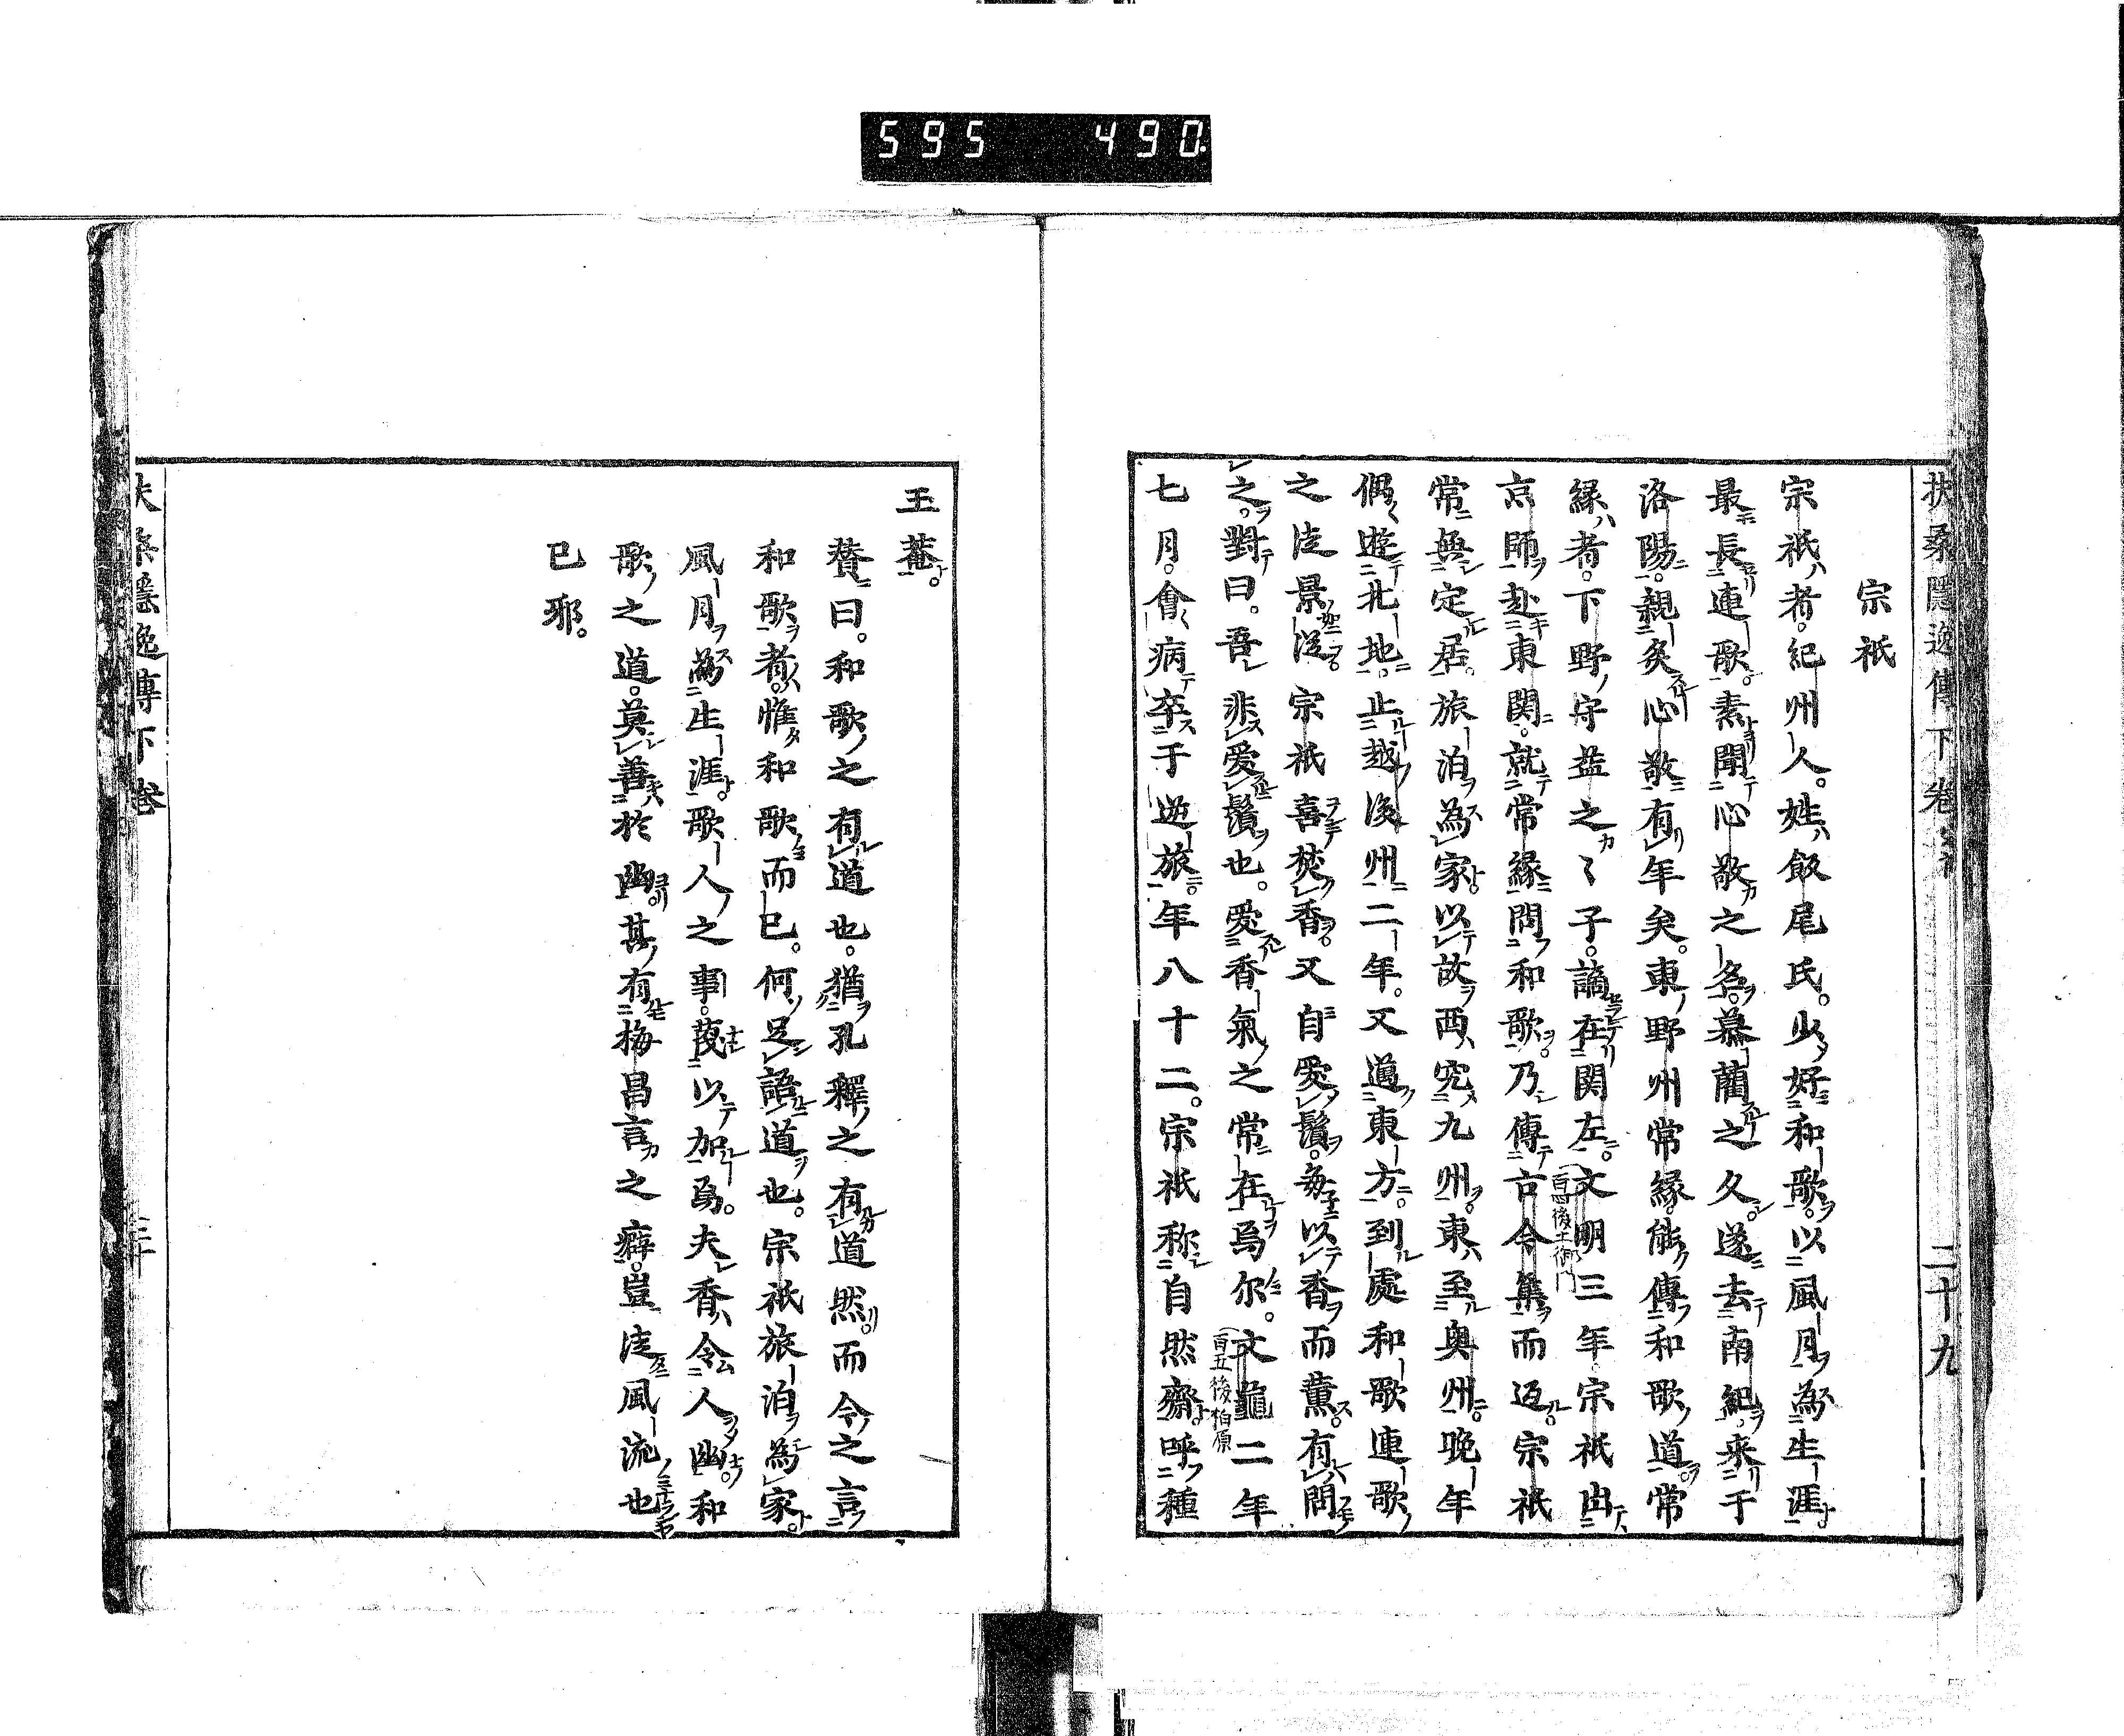 595 490.
扶桑隱逸傳下卷 二十九
宗祇
宗祇者。紀州人。姓飯尾氏。少好和歌。以風月為生涯
最長連歌。素聞心敬之名。慕藺之久。遂去南紀。来于
洛陽。親炙心敬有年矣。東野州常縁。能傳和歌道。常
縁者。下野守益之〻子。謫在関左。文明三年宗祇出
百四後土御門
京師赴東関。就常縁問和歌。乃傳古今集而返。宗祇
常無定居。旅泊為家。以故西究九州。東至奥州。晩年
偶遊北地。止越後州二年。又適東方。到處和歌連歌
之徒景從。宗祇喜焚香。又自愛鬚。毎以香而薫。有問
之。對曰。吾非愛鬚也。愛香氣之常在焉尓。文龜二年
百五後柏原
七月。會病卒于逆旅。年八十二。宗祇称自然齋。呼種
玉菴。
賛曰。和歌之有道也。猶孔釋之有道然。而今之言
和歌者。惟和歌而已。何足語道也。宗祇旅泊為家。
風月為生涯。歌人之事。蔑以加焉。夫香令人幽。和
歌之道。莫善於幽。其有梅昌言之癖。豈徒風流也
已耶。
扶桑隱逸傳下卷 三十